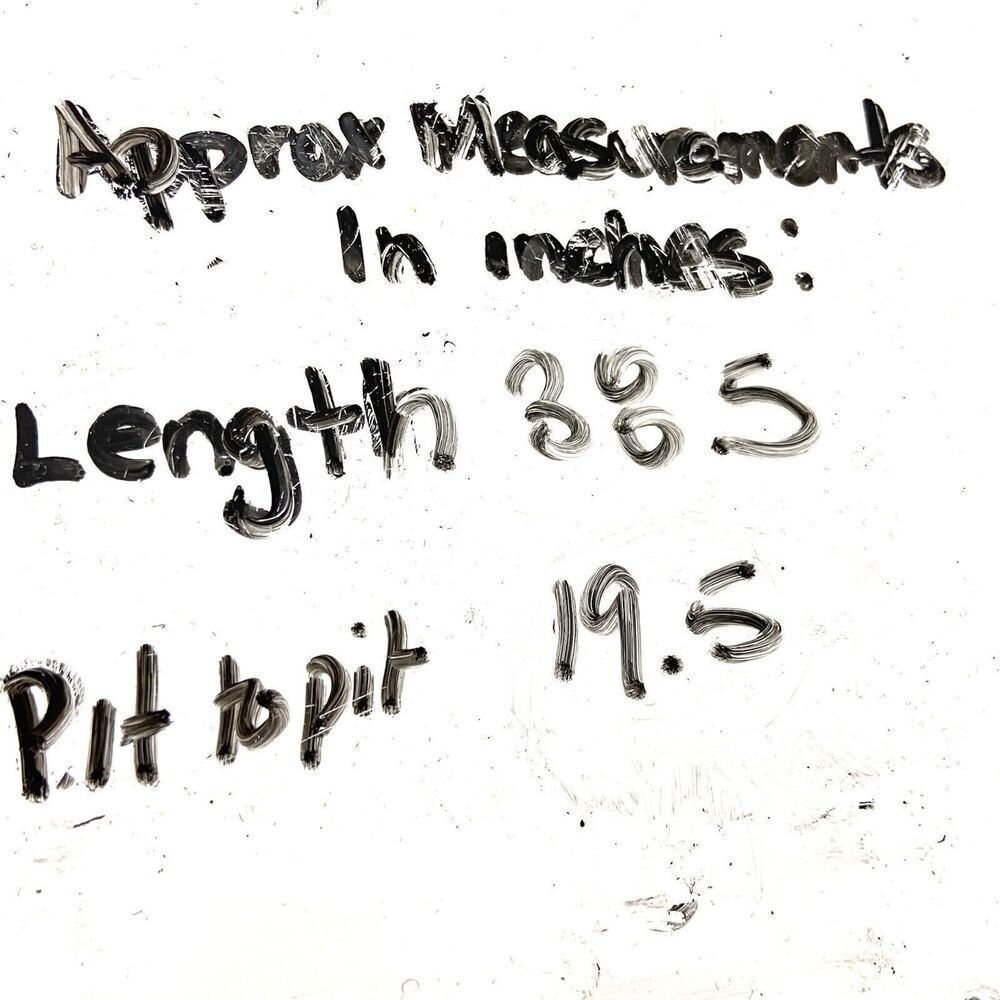 Approx Measurements
In inches:
Length 38 5
Pit to pit 19.5